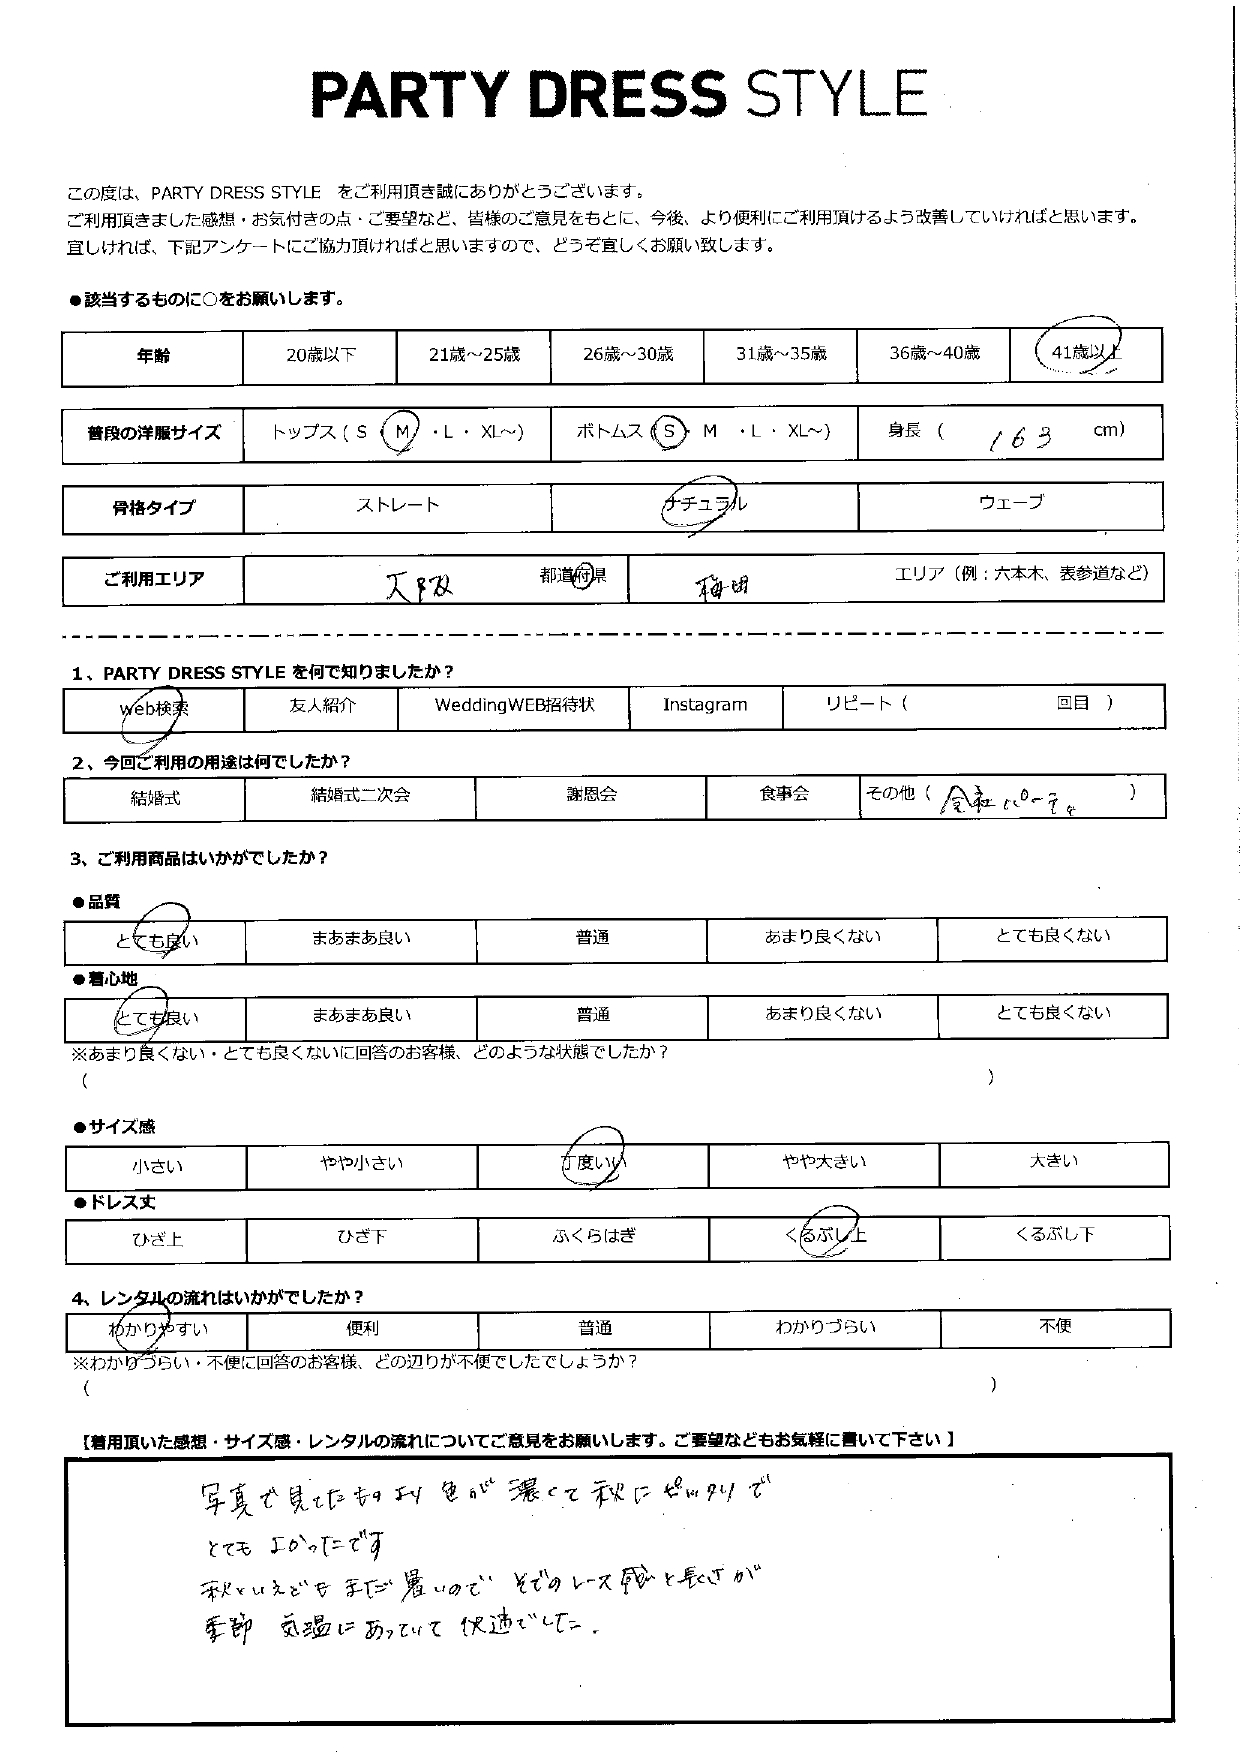 PARTY DRESS STYLE
この度は、PARTY DRESS STYLE　をご利用頂き誠にありがとうございます。
ご利用頂きました感想・お気付きの点・ご要望など、皆様のご意見をもとに、今後、より便利にご利用頂けるよう改善していければと思います。
宜しければ、下記アンケートにご協力頂ければと思いますので、どうぞ宜しくお願い致します。
●該当するものに○をお願いします。
年齢 20歳以下 21歳～25歳 26歳～30歳 31歳～35歳 36歳～40歳 41歳以上
普段の洋服サイズ トップス ( S ・ M ・L ・ XL～) ボトムス ( S ・ M ・L ・ XL～) 身長 ( 163 cm)
骨格タイプ ストレート ナチュラル ウェーブ
ご利用エリア 大阪 都道府県 梅田 エリア（例：六本木、表参道など）
1、PARTY DRESS STYLE を何で知りましたか？
web検索 友人紹介 WeddingWEB招待状 Instagram リピート ( 回目 )
2、今回ご利用の用途は何でしたか？
結婚式 結婚式二次会 謝恩会 食事会 その他 ( 会社パーティ )
3、ご利用商品はいかがでしたか？
●品質
とても良い まあまあ良い 普通 あまり良くない とても良くない
●着心地
とても良い まあまあ良い 普通 あまり良くない とても良くない
※あまり良くない・とても良くないに回答のお客様、どのような状態でしたか？
( )
●サイズ感
小さい やや小さい 丁度いい やや大きい 大きい
●ドレス丈
ひざ上 ひざ下 ふくらはぎ くるぶし上 くるぶし下
4、レンタルの流れはいかがでしたか？
わかりやすい 便利 普通 わかりづらい 不便
※わかりづらい・不便に回答のお客様、どの辺りが不便でしたでしょうか？
( )
【着用頂いた感想・サイズ感・レンタルの流れについてご意見をお願いします。ご要望などもお気軽に書いて下さい】
写真で見てたものより 色が 濃くて 秋に ピッタリで
とても よかったです
秋といえども まだ 暑いので そでのレース感と長さが
季節 気温に あっていて 快適でした.